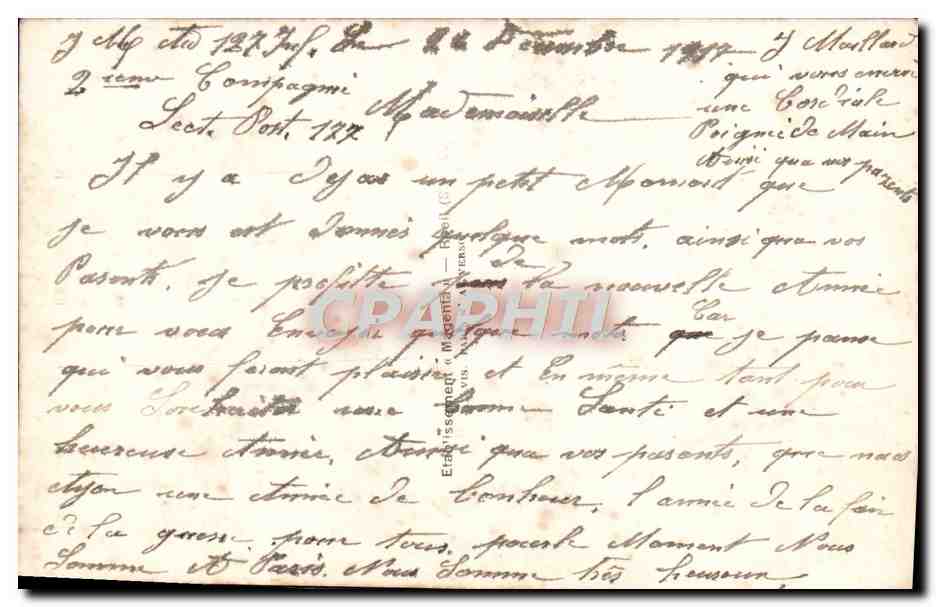 J M 127 Inf. Le Décembre 1917
2ieme Compagnie
Sect. Post. 177
Mademoiselle
Il y a Deja un petit Moment que
je vous est donnés quelque mots, ainsi qua vos
Parents, je profitte de la nouvelle Année
pour vous Envoyer quelque mots Car je panse
qui vous feront plaisir et En même tant pour
vous Souhaiter une bonne Santé et une
heureuse Année, Ainsi qua vos parents, que nous
Ayon une Année de bonheur, l'année de la fin
de la guerre pour tous, pour le Moment Nous
Somme A Paris. Nous Somme très heureux,
J Maillard
qui vous envoie
une Cordiale
Poignée de Main
Ainsi qua vos parents
Etablissement « Magenta » — R
CPAPHIL